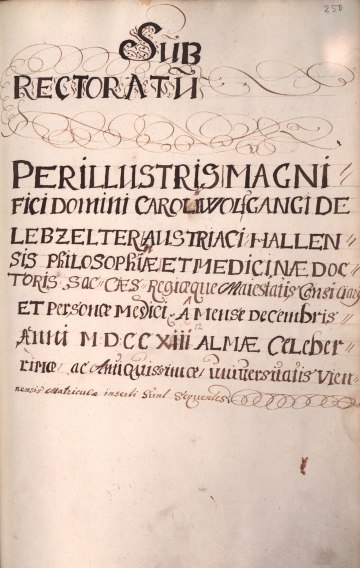 250
SUB
RECTORATŨ
PERILLUSTRIS MAGNI=
FICI DOMINI CAROLI WOLFGANGI DE
LEBZELTER, AUSTRIACI HALLEN=
SIS PHILOSOPHIÆ ET MEDICINÆ DOC=
TORIS, SAC: CÆS: Regiæque Maiestatis
ET Personæ Medici, A Mense Decembris
Anni MDCCXIII ALMÆ Celeber=
rimæ, ac Antiquissimæ Universitatis Vien=
nensis Matriculæ inserti Sunt Sequentes.